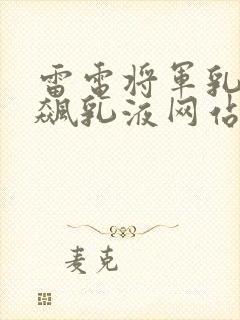 雷电将军乳
飙乳液网站
麦克